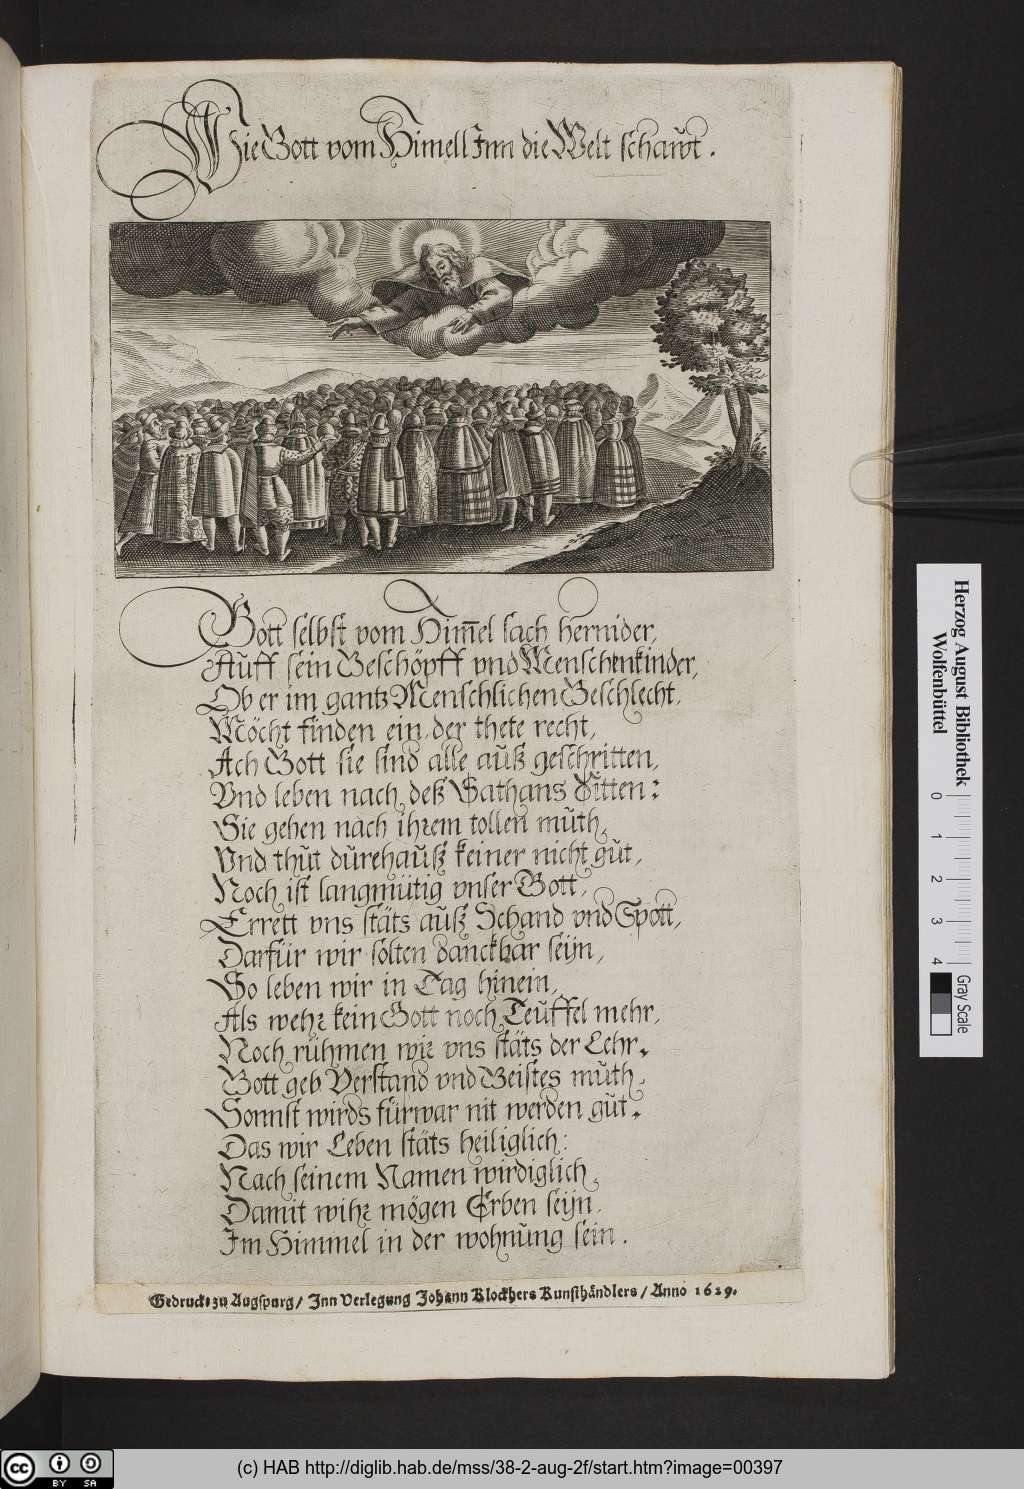 Wie Gott vom Himell Inn die Welt schawt.
Gott selbst vom Him̄el sach hernider,
Auff sein Geschöpff vnd Menschenkinder,
Ob er im gantz Menschlichen Geschlecht,
Möcht finden ein, der thete recht,
Ach Gott sie sind alle auß geschritten,
Vnd leben nach deß Sathans Sitten:
Sie gehen nach ihrem tollen muth,
Vnd thut durchauß keiner nicht gut,
Noch ist langmütig vnser Gott,
Errett vns stäts auß Schand vnd Spott,
Darfür wir solten danckbar seijn,
So leben wir in Tag hinein,
Als wehr kein Gott noch Teuffel mehr,
Noch rühmen wir vns stäts der Lehr.
Gott geb Verstand vnd Geistes muth,
Sonnst wirds fürwar nit werden gut.
Das wir Leben stäts heiliglich:
Nach seinem Namen wirdiglich,
Damit wihr mögen Erben seijn,
Im Himmel in der wohnung sein.
Gedruckt zu Augspurg/ Inn Verlegung Johann Klockhers Kunsthändlers/ Anno 1629.
Herzog August Bibliothek
Wolfenbüttel
0 1 2 3 4
Gray Scale
cc BY SA
(c) HAB http://diglib.hab.de/mss/38-2-aug-2f/start.htm?image=00397